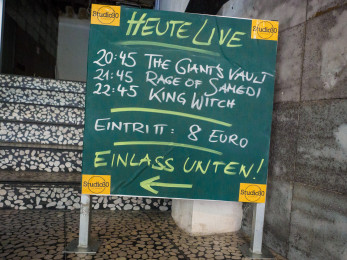 Studio30
Studio30
HEUTE LIVE
20:45 THE GIANT'S VAULT
21:45 RAGE OF SAMEDI
22:45 KING WITCH
EINTRITT: 8 EURO
EINLASS UNTEN!
Studio30
Studio30